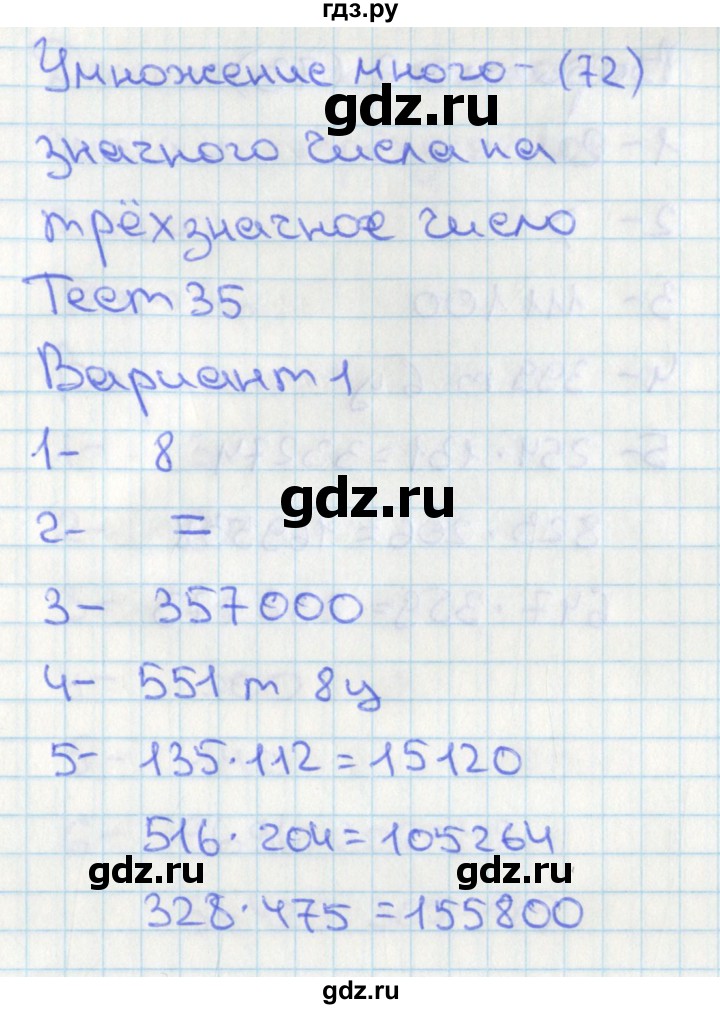 гдз.ру
Умножение много- (72)
gdz.ru
значного числа на
трёхзначное число
Тест 35
Вариант 1
1- 8
gdz.ru
2- =
3- 357000
4- 551 т 8 ц
5- 135·112=15120
516·204=105264
gdz.ru gdz.ru
328·475=155800
gdz.ru